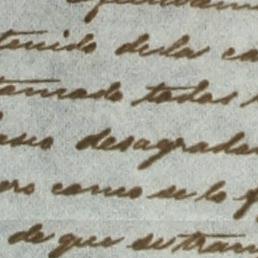 tenido de las ca
tomado todas
desagrada
pero como se lo
de que se tran